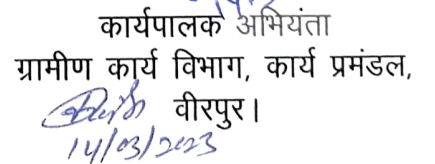 कार्यपालक अभियंता
ग्रामीण कार्य विभाग, कार्य प्रमंडल,
वीरपुर।
14/03/2023